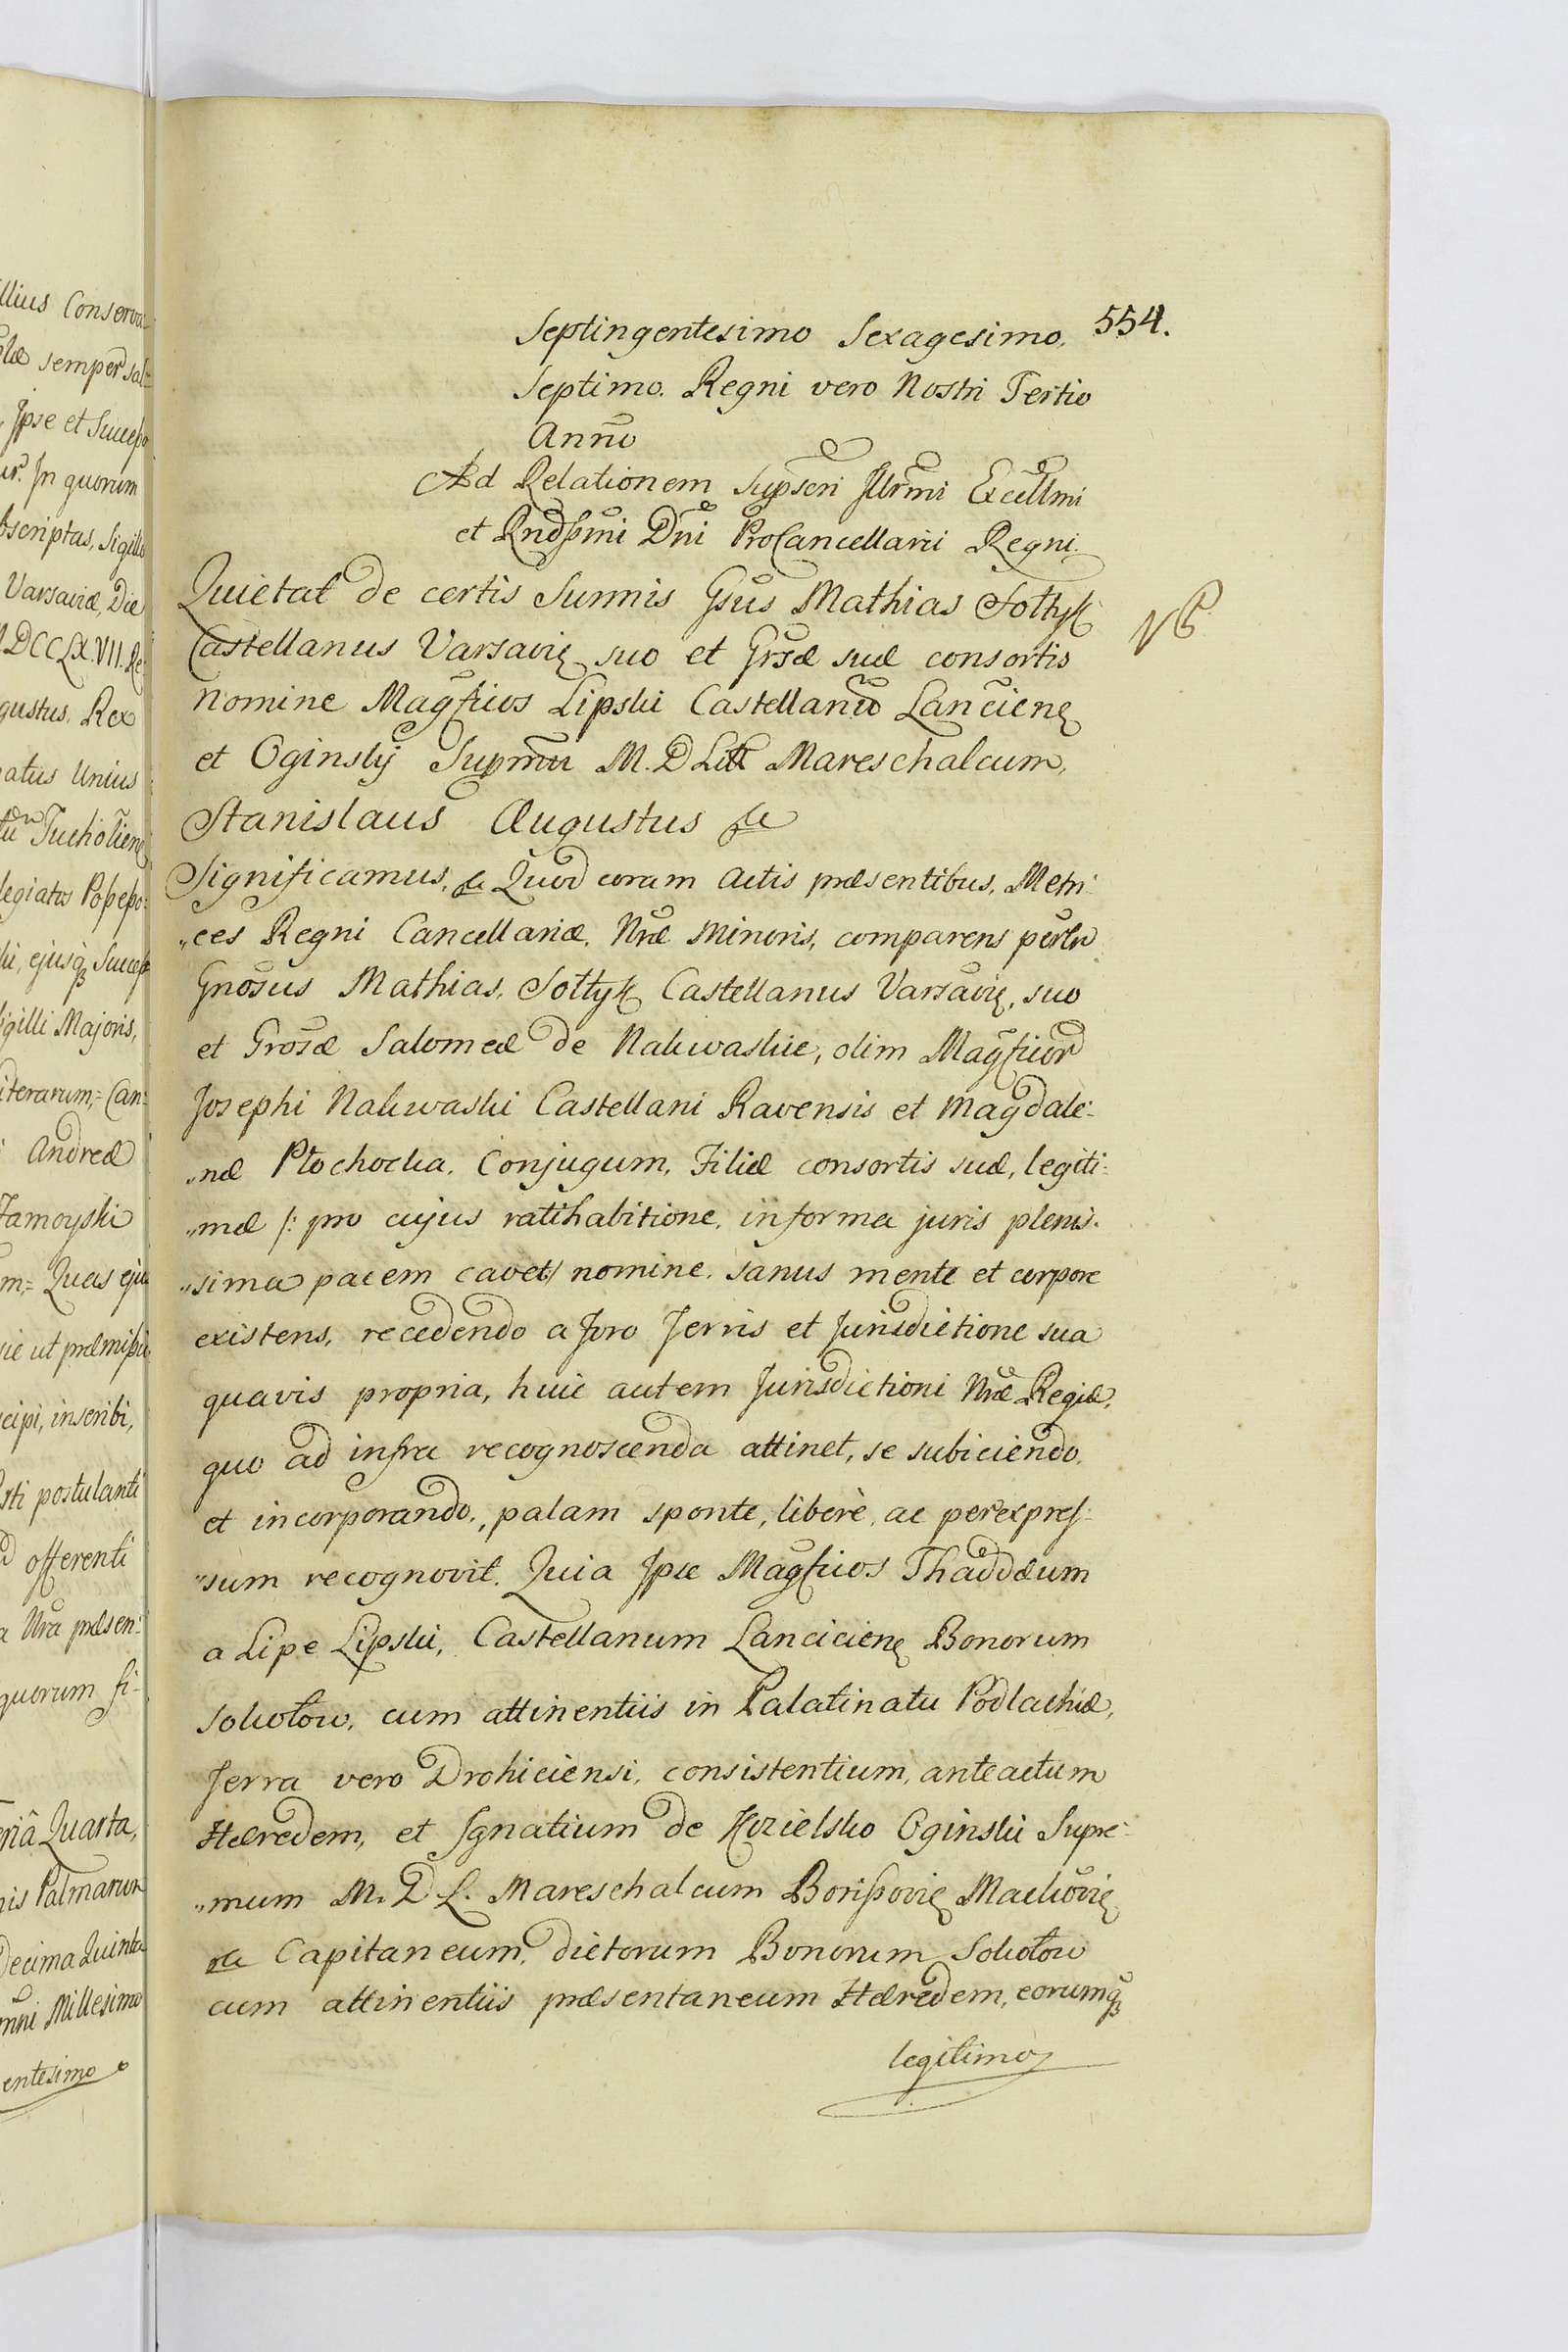 llius Conserva-
semper sal=
Ipse et Succeßo
In quorum
bscriptas, Sigillo
Varsaviæ, Die
DCCLX.VII. Re=
gustus, Rex
atus Unius
Tucholien
legiatos Poßeßo=
ki, ejusq Succeß
igilli Majoris,
iterarum,= Can=
Andreæ
Zamoyski
m,= Quas eju
ut præmißu
cipi, inscribi,
sti postulanti
offerenti
a Nrã præsen=
quorum fi-
riâ Quarta,
nis Palmarum
Decima Quinta
Millesimo
entesimo
554.
Septingentesimo Sexagesimo.
Septimo. Regni vero Nostri Tertio
Anno
Ad Relationem Supscri Illrmi Excellmi
et Rndßmi Dni ProCancellarii Regni.
Quietat de certis Summis Gsus Mathias Sołtyk
Castellanus Varsavię suo et Grsæ suæ consortis
nomine Magficos Lipski Castellanũ Lancicienę
et Oginskij Supmũ M. D Litt Mareschalcum,
Stanislaus Augustus &c
Significamus, &c Quod coram Actis præsentibus, Metri-
„ces Regni Cancellariæ, Nræ Minoris, comparens perlr
Gnosus Mathias, Sołtyk Castellanus Varsavię, suo
et Grosæ Salomeæ de Nakwaskie, olim Magficor
Josephi Nakwaski Castellani Ravensis et Magdale-
„næ Płochocka, Conjugum, Filiæ consortis suæ, legiti=
„mæ /: pro cujus ratihabitione, in forma juris plenis-
„sima pacem cavet:/ nomine, sanus mente et corpore
existens, recedendo a foro Terris et Jurisdictione sua
quavis propria, huic autem Jurisdictioni Nræ Regiæ,
quo ad infra recognoscenda attinet, se subiciendo,
et incorporando, palam sponte, liberè, ac per expres-
„sum recognovit. Quia Ipse Magficos Thaddæum
a Lipe Lipski, Castellanum Lancicienę Bonorum
Sokołow, cum attinentiis in Palatinatu Podlachiæ,
Terra vero Drohiciensi, consistentium, anteactum
Hæredem, et Ignatium de Kozielsko Oginski Supre-
„mum M. D L. Mareschalcum Borißovię Mackovię
&c Capitaneum, dictorum Bonorum Sokołow
cum attinentiis præsentaneum Hæredem, eorumq
legitimos